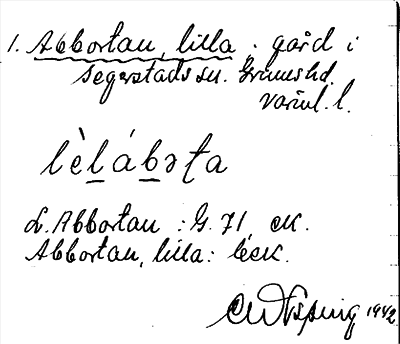 1. Abbortan, lilla : gård i
Segerstads sn. Grums hd.
Värml. l.
lèlábəta
L. Abbortan : G. 71, ek.
Abbortan, lilla: leck.
1942